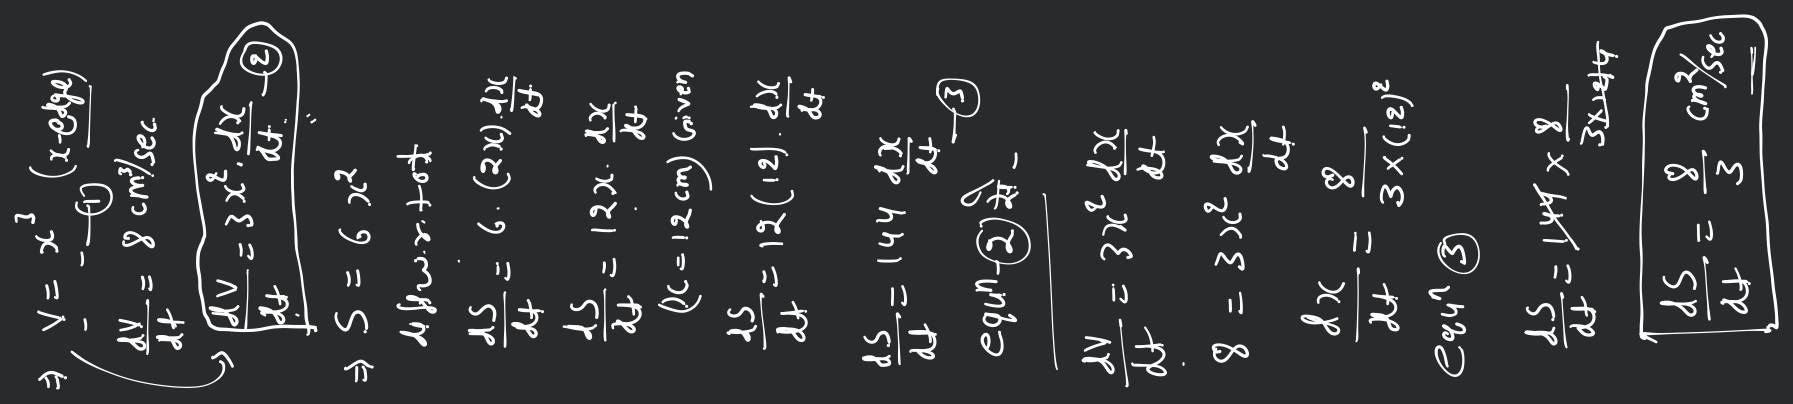 ⇒ V = x³ (x-edge)
- - - ①
dV/dt = 8 cm³/sec.
dV/dt = 3x². dx/dt - ②
⇒ S = 6x²
diff w.r.to t
dS/dt = 6.(2x).dx/dt
dS/dt = 12x. dx/dt
(x = 12 cm) Given
dS/dt = 12(12). dx/dt
dS/dt = 144 dx/dt - ③
equⁿ - ②
dV/dt = 3x² dx/dt
8 = 3x² dx/dt
dx/dt = 8/3×(12)²
equⁿ ③
dS/dt = 144 × 8/3×144
dS/dt = 8/3 cm²/sec